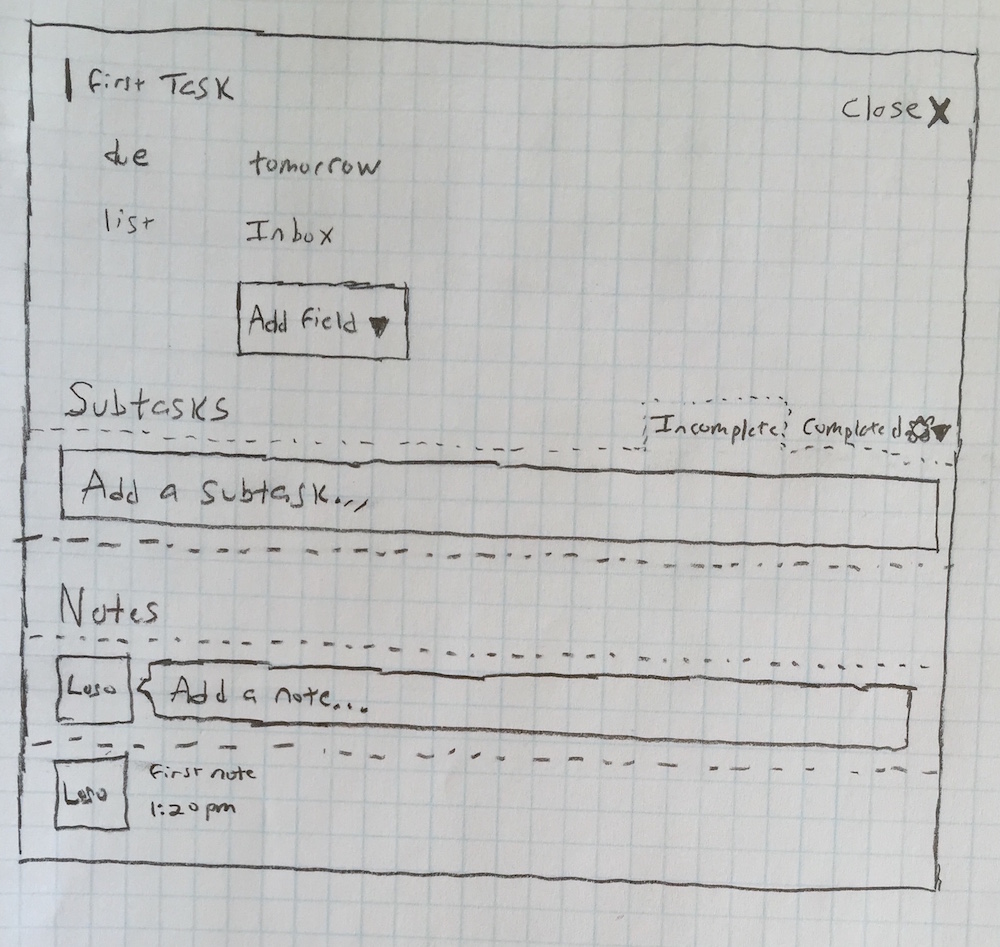 First Task
Close X
due tomorrow
list Inbox
Add Field
Subtasks
Incomplete Completed
Add a subtask...
Notes
Logo Add a note...
Logo First note
1:20 pm